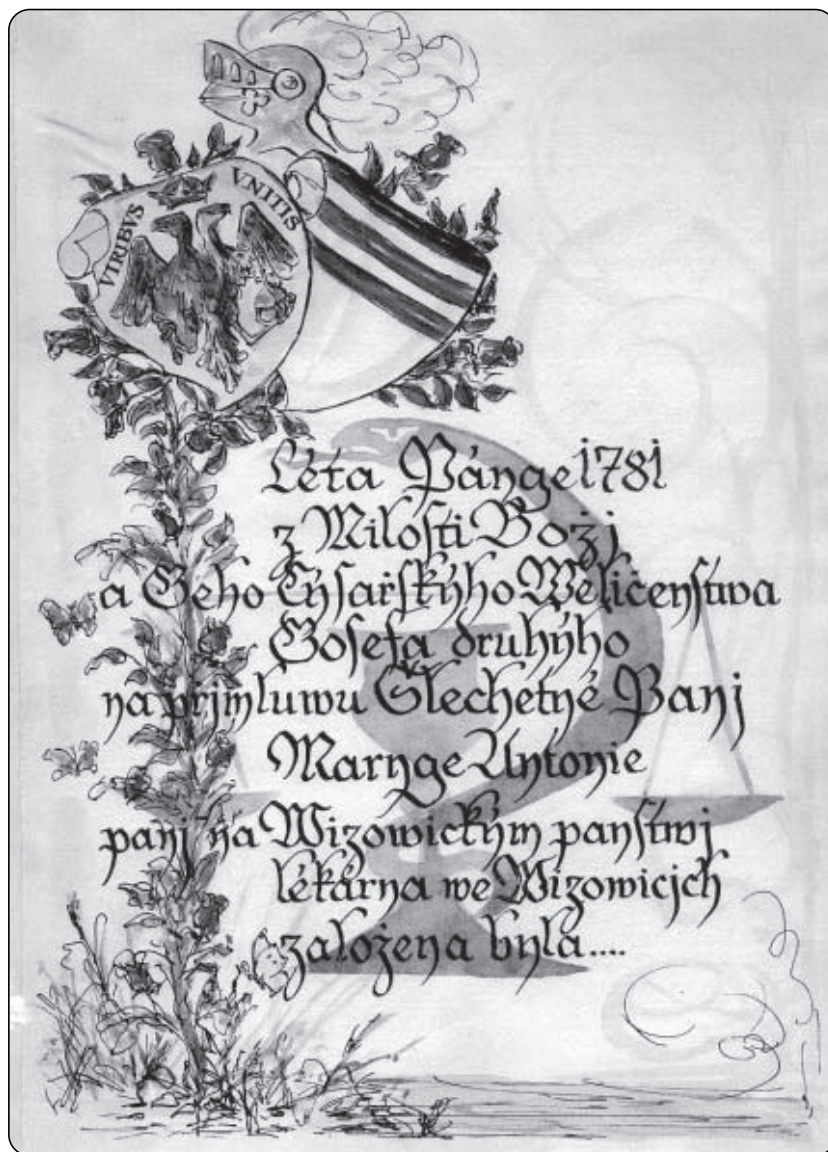 VIRIBVS VNITIS
Léta Pánge 1781
z Milosti Boží
a Geho Cýsařskýho Weličenstwa
Gosefa druhýho
na přjmluwu Šlechetné Panj
Maryge Antonie
panj na Wizowickým panstwj
lékárna we Wizowicjch
založena byla....